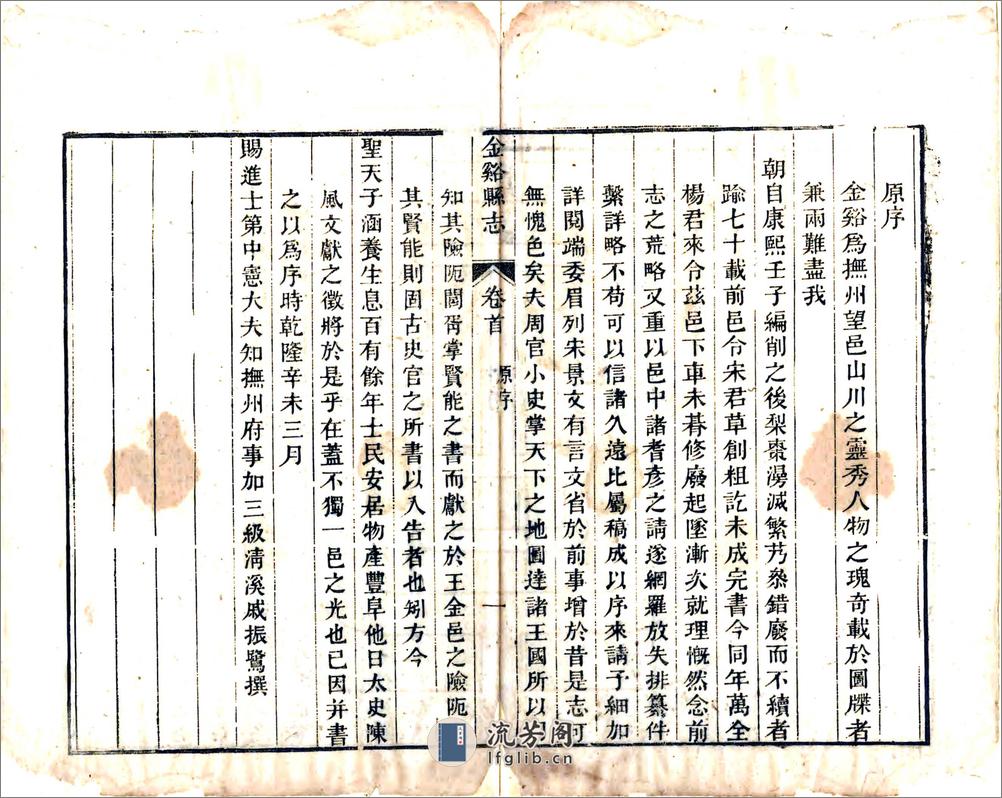 原序
金谿爲撫州望邑山川之靈秀人物之瑰奇載於圖牒者
兼兩難盡我
朝自康熙壬子編削之後梨棗漫滅繁艿叅錯廢而不續者
踰七十載前邑令宋君草創粗訖未成完書今同年萬全
楊君來令茲邑下車未朞修廢起墜漸次就理慨然念前
志之荒略又重以邑中諸耆彥之請遂網羅放失排纂件
繫詳略不苟可以信諸久遠比屬稿成以序來請予細加
詳閱端委眉列宋景文有言文省於前事增於昔是志可
無愧色矣夫周官小史掌天下之地圖達諸王國所以
金谿縣志
卷首
原序
一
知其險阨閭胥掌賢能之書而獻之於王金邑之險阨
其賢能則固古史官之所書以入告者也矧方今
聖天子涵養生息百有餘年士民安居物產豐阜他日太史陳
風文獻之徵將於是乎在蓋不獨一邑之光也已因并書
之以爲序時乾隆辛未三月
賜進士第中憲大夫知撫州府事加三級清溪戚振鷺撰
流芳阁
lfglib.cn